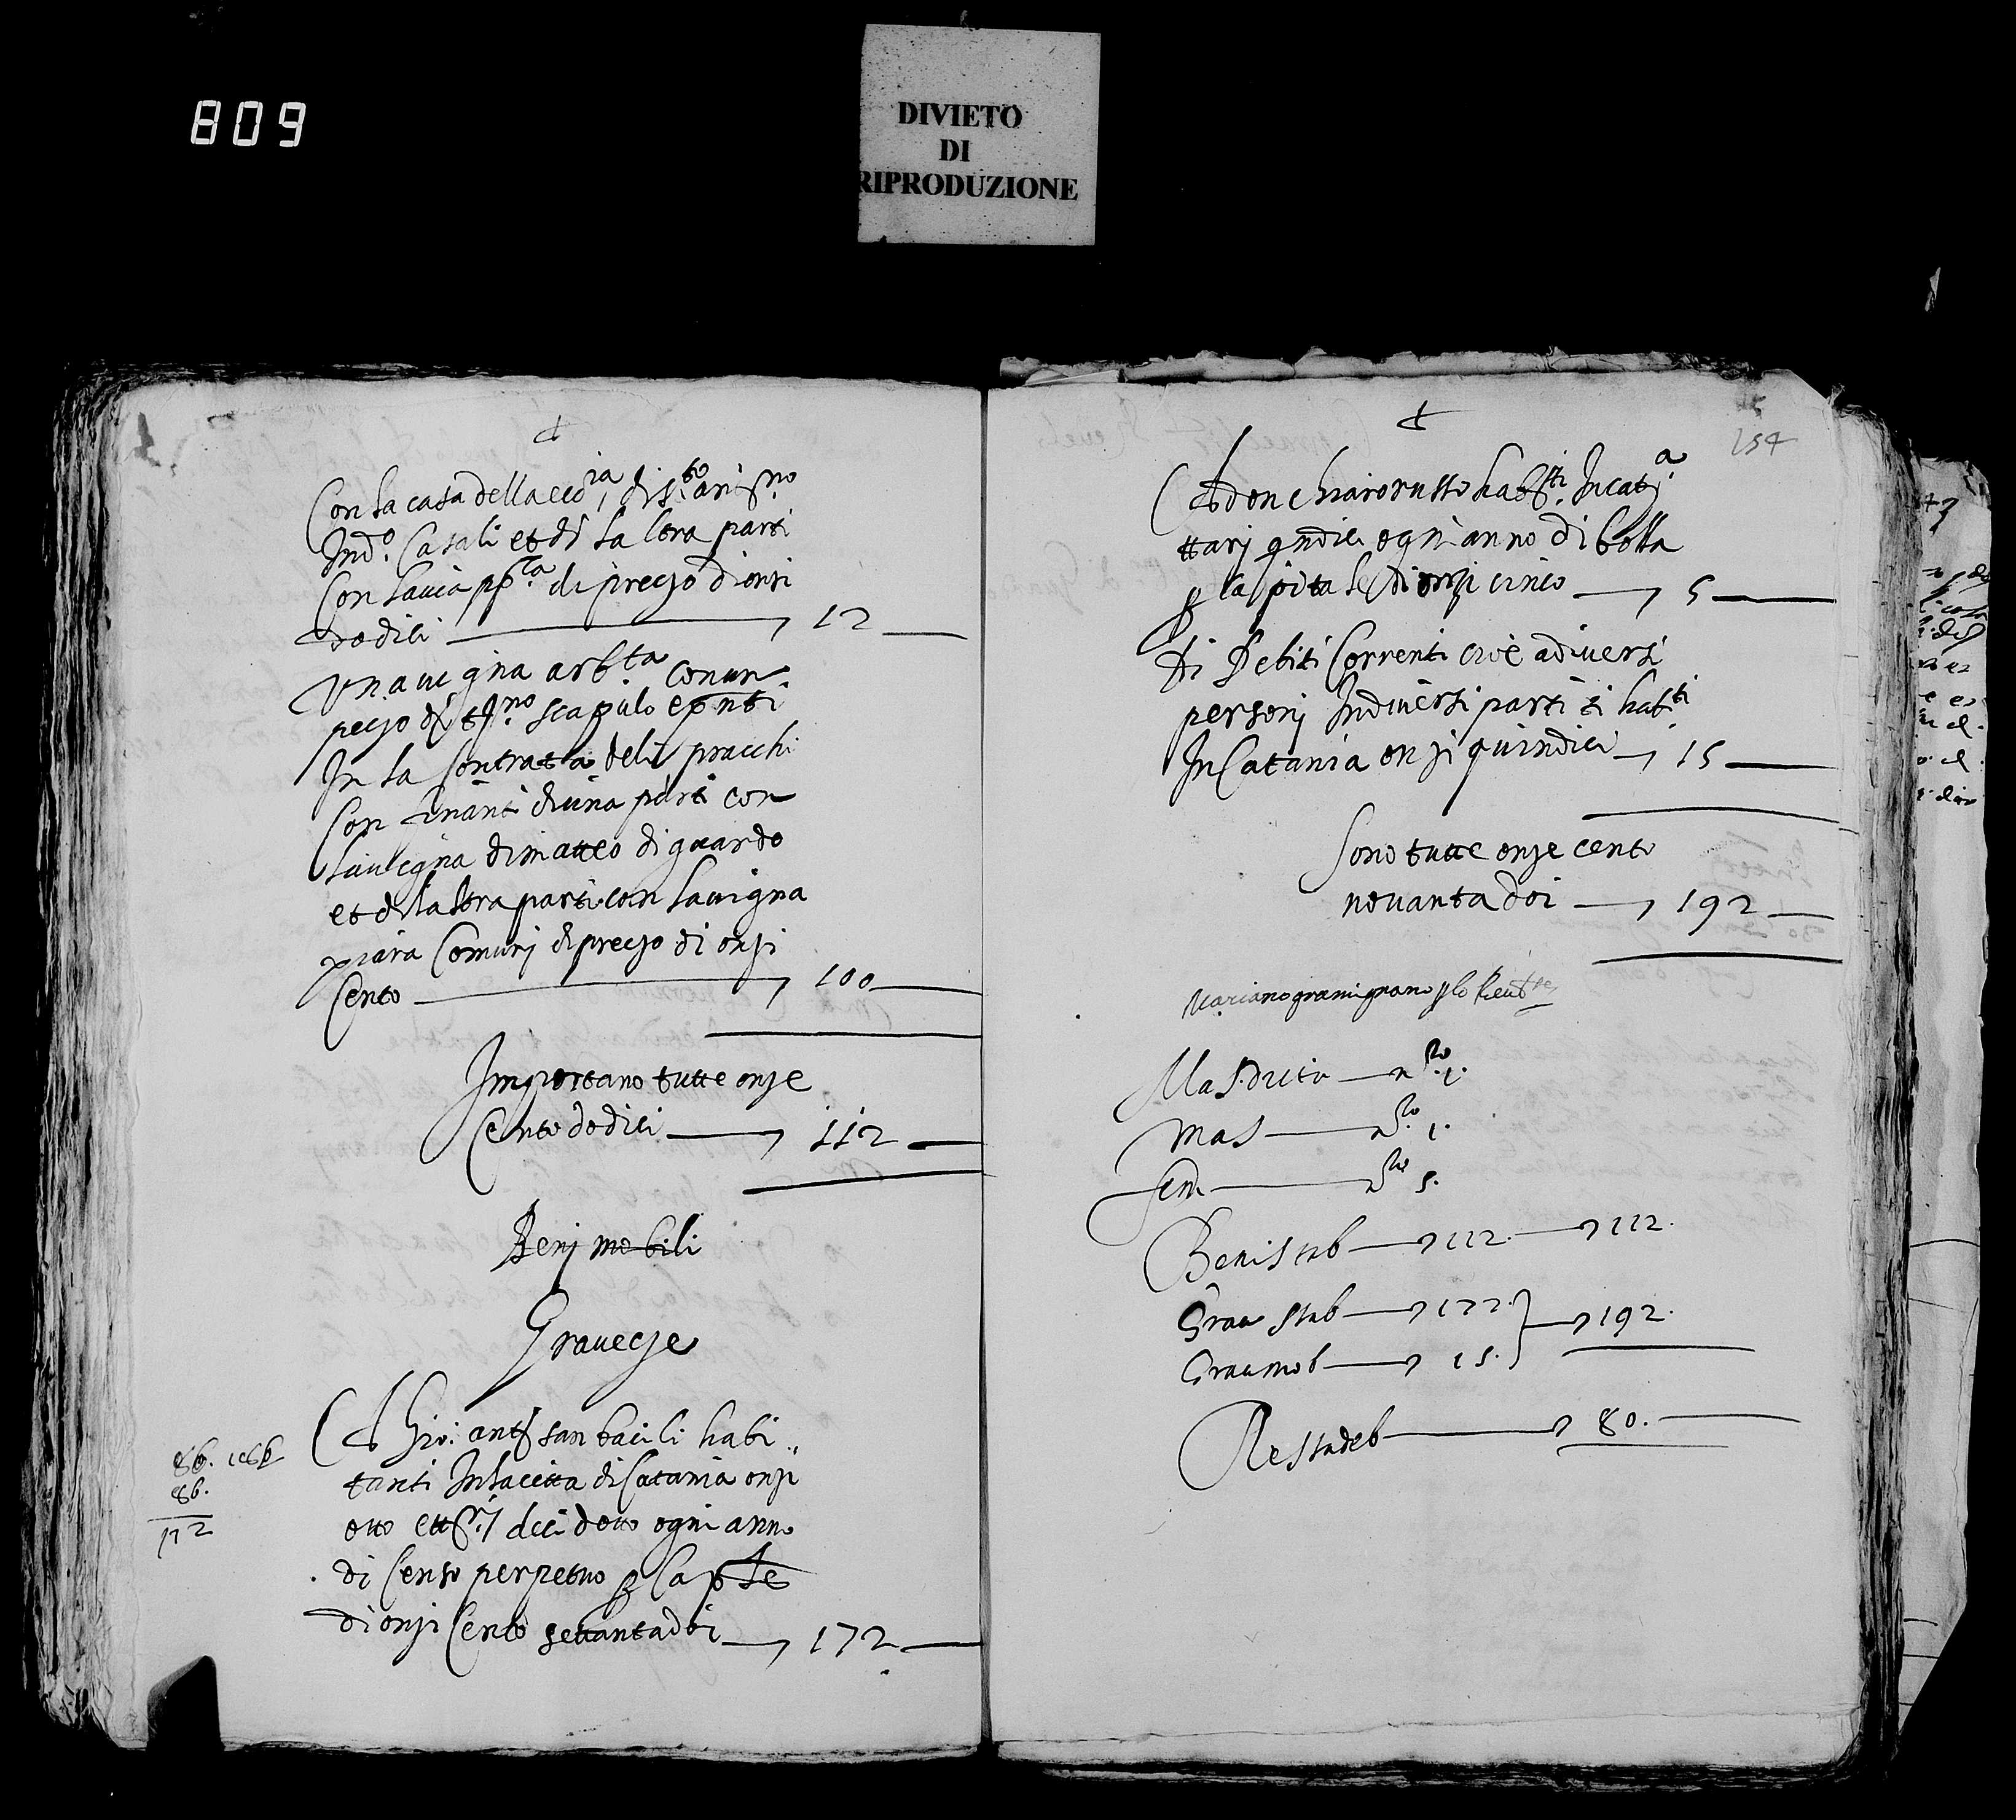 809
DIVIETO
DI
RIPRODUZIONE
Con la casa della eccia, di s.to
Ind.o Casali et di la ltra parti
Con la via pp.ta di prezo di onsi
dodici — 12
Una vigna arb.ta con un
pezo di t.no scapulo
In la Contrata deli
Con di una parti con
la vigna di matteo di guardo
et di la ltra parti con la vigna
di prezo di onzi
Cento — 100
Importano tutte onze
Cento dodici — 112
Beni mobili
Graveze
A Gio: ant.o san basili habi„
tanti In la citta di Catania onzi
otto ett.ri deci dotto ogni anno
di Censo perpetuo p Cap.le
di onzi Cento settanta doi — 172
86.
86.
172
154
A don chiaro russo hab.ti In cat.a
ttarj quindici ogni anno di bolla
p capitale di onzi cinco — 5
Di Debiti Correnti cioè a diversi
personi In diversi parti ti hab.ti
In Catania onzi quindici — 15
Sono tutte onze cento
novanta doi — 192
Mariano gramignano p lo
Mas — n.ro 1.
mas — n.ro 1.
fem — n.ro 5.
Beni stab — 112. — 112.
Grav stab — 177. } — 192.
Grav mob — 15.
Resta deb — 80.